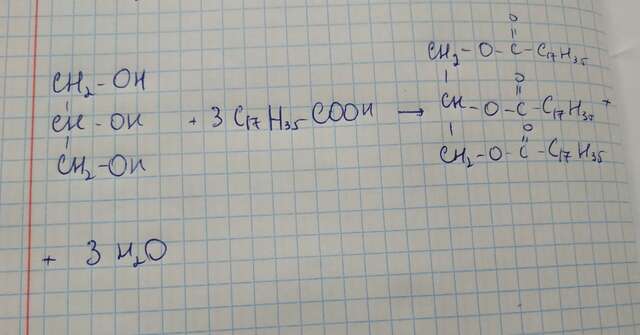 CH₂ - OH
CH - OH
CH₂ - OH
+ 3 C₁₇H₃₅COOH →
O
CH₂ - O - C - C₁₇H₃₅
O
CH - O - C - C₁₇H₃₅ +
O
CH₂ - O - C - C₁₇H₃₅
+ 3 H₂O